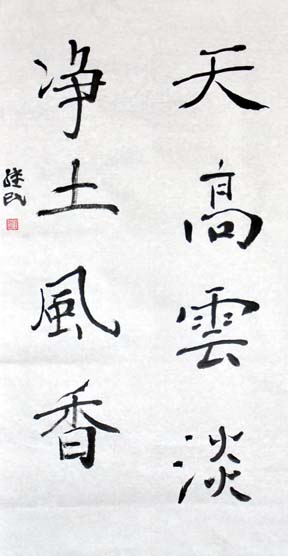 天高雲淡
净土風香